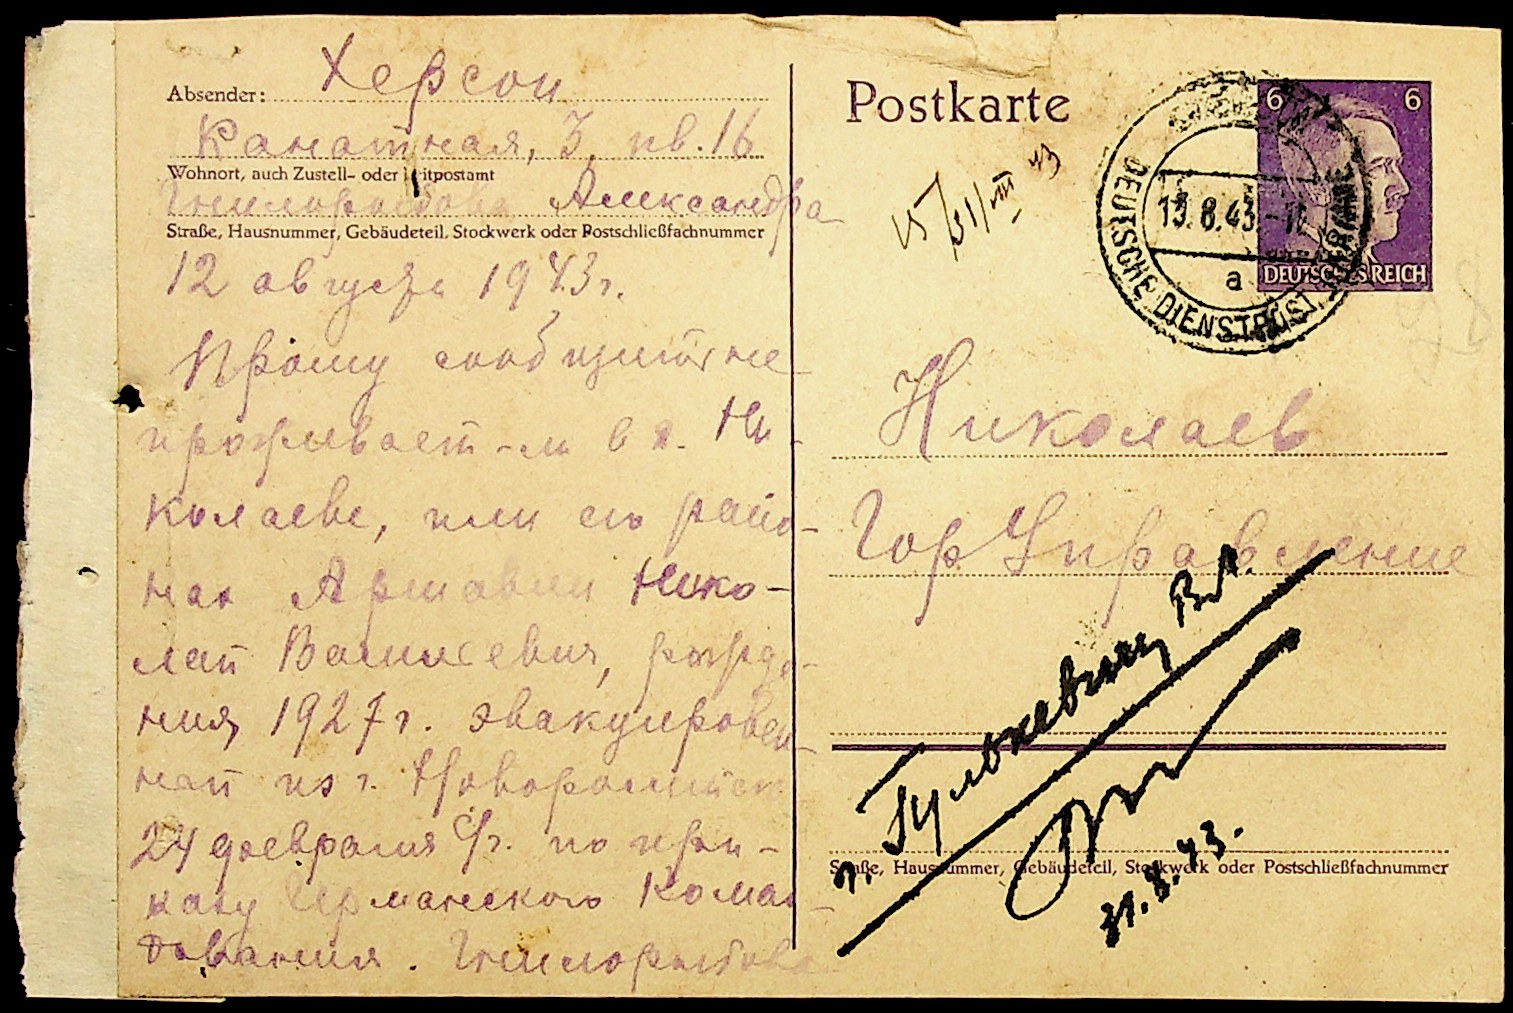 Absender: Херсон
Канатная, 3, кв. 16
Wohnort, auch Zustell- oder Leitpostamt
Гнилорыбова Александра
Straße, Hausnummer, Gebäudeteil, Stockwerk oder Postschließfachnummer
12 августа 1943 г.
Прошу сообщить не
проживает-ли в г. Ни-
колаеве, или его райо-
нах Аршавин Нико-
лай Васильевич, рожде-
ния 1927 г. эвакуирован-
ный из г. Новороссийска
24 февраля с/г. по при-
казу Германского Коман-
дования. Гнилорыбова
Postkarte
6 6
DEUTSCHES REICH
DEUTSCHE DIENSTPOST UKRAINE
13.8.43
a
Николаев
Гор Управление
г. Гулькевичу В.А.
31.8.43.
Straße, Hausnummer, Gebäudeteil, Stockwerk oder Postschließfachnummer